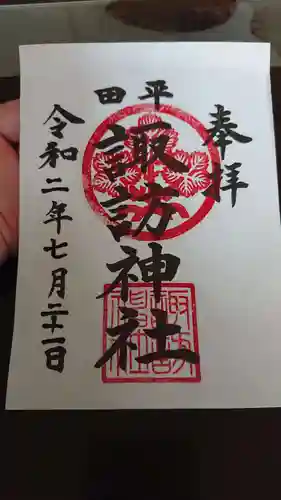 奉拝
平田
諏訪神社
令和二年七月二十一日
諏訪
神社